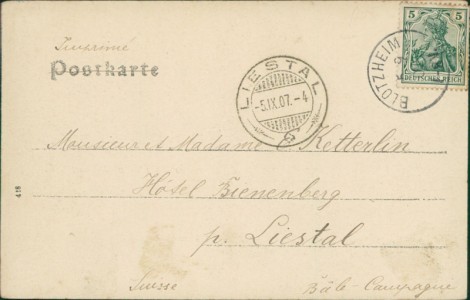 Imprimé
Postkarte
5 5
DEUTSCHES REICH
BLOTZHEIM
LIESTAL
-5.IX.07.-4
Monsieur et Madame E Ketterlin
Hôtel Bienenberg
p. Liestal
Suisse
Bâle-Campagne